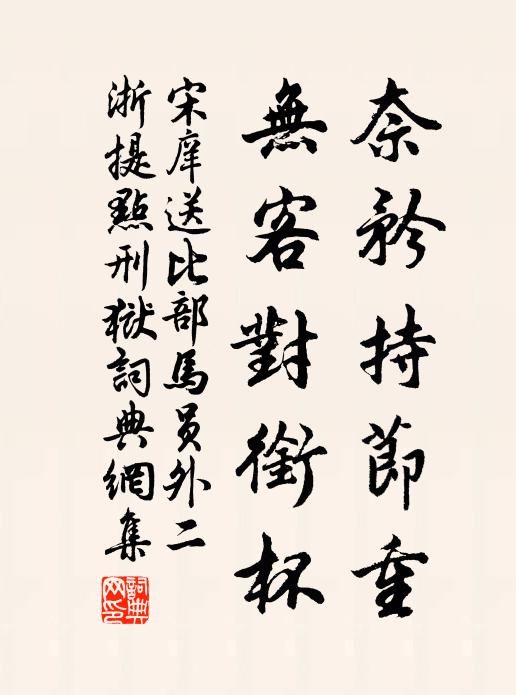 奈矜持節重
無客對銜杯
宋庠送比部馬員外二
浙提點刑獄詞典網集
詞典
网印